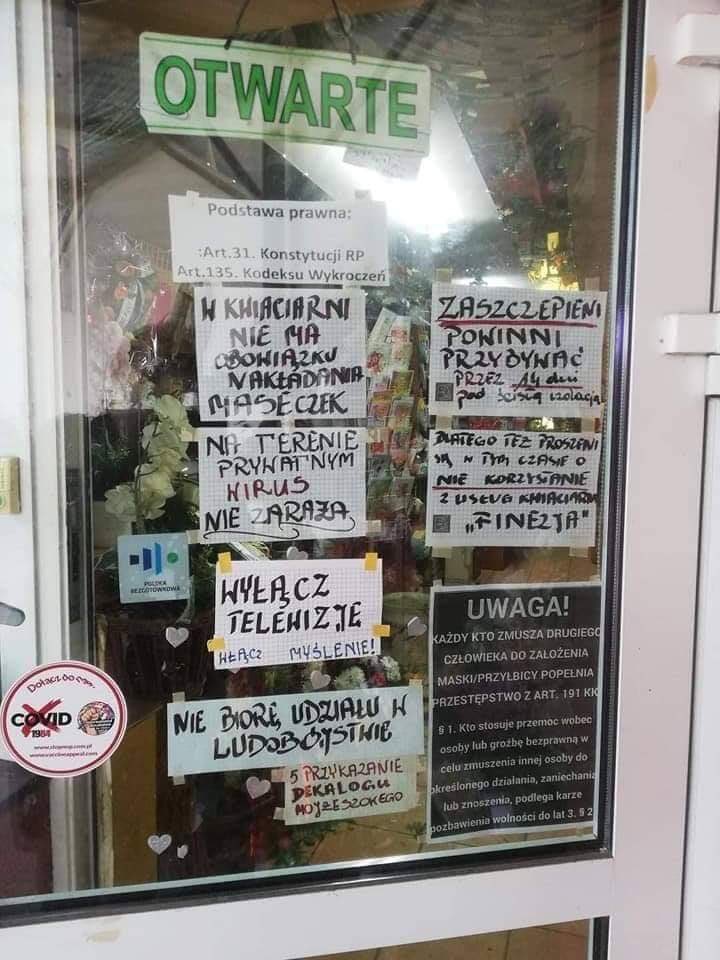 OTWARTE
Podstawa prawna:
:Art.31. Konstytucji RP
Art.135. Kodeksu Wykroczeń
W KWIACIARNI
NIE MA
OBOWIĄZKU
NAKŁADANIA
MASECZEK
NA TERENIE
PRYWATNYM
WIRUS
NIE ZARAŻA
WYŁĄCZ
TELEWIZJĘ
WŁĄCZ MYŚLENIE!
NIE BIORĘ UDZIAŁU W
LUDOBÓJSTWIE
5 PRZYKAZANIE
DEKALOGU
MOJŻESZOKEGO
ZASZCZEPIENI
POWINNI
PRZYBYWAĆ
PRZEZ 14 dni
pod ścisłą izolacją
DLATEGO TEŻ PROSZENI
SĄ W TYM CZASIE O
NIE KORZYSTANIE
Z USŁUG KWIACIARNI
„FINEZJA"
UWAGA!
KAŻDY KTO ZMUSZA DRUGIEGO
CZŁOWIEKA DO ZAŁOŻENIA
MASKI/PRZYŁBICY POPEŁNIA
PRZESTĘPSTWO Z ART. 191 KK
§ 1. Kto stosuje przemoc wobec
osoby lub groźbę bezprawną w
celu zmuszenia innej osoby do
określonego działania, zaniechania
lub znoszenia, podlega karze
pozbawienia wolności do lat 3. § 2
POLSKA
BEZGOTÓWKOWA
Dołącz do
COVID
1984
www.stopnop.com.pl
www.vaccineappeal.com